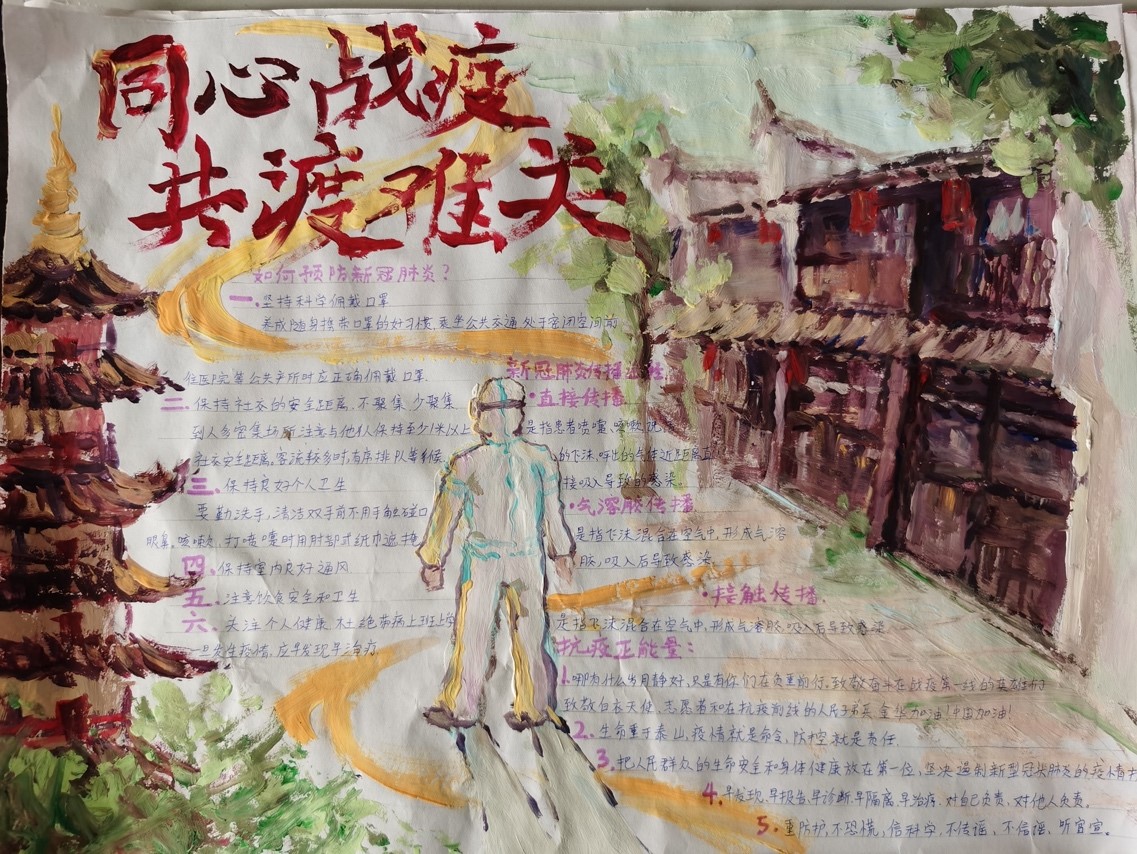 同心战疫
共渡难关
如何预防新冠肺炎？
一.坚持科学佩戴口罩
养成随身携带口罩的好习惯,乘坐公共交通 处于密闭空间前
往医院等公共产所时应正确佩戴口罩.
二.保持社交的安全距离,不聚集 少聚集
到人多密集场所 注意与他人保持至少1米以上
社交安全距离,客流较多时,有序排队等候.
三.保持良好个人卫生
要勤洗手,清洁双手前不用手触碰口
眼鼻.咳嗽、打喷嚏时用肘部式纸巾遮掩
四.保持室内良好通风
五.注意饮食安全和卫生
六.关注个人健康 杜绝带病上班上学
一旦发生疫情,应早发现早治疗.
新冠肺炎传播
•直接传播
是指患者喷嚏、咳嗽、说
的飞沫,呼出的气体近距离直
接吸入导致的感染。
•气溶胶传播
是指飞沫混合在空气中,形成气溶
胶,吸入后导致感染
•接触传播
是指飞沫混合在空气中,形成气溶胶 吸入后导致感染
抗疫正能量：
1.哪有什么岁月静好,只是有你们在负重前行,致敬奋斗在战疫第一线的英雄们
致敬白衣天使、志愿者和在抗疫前线的人民子弟兵 金华加油!中国加油!
2.生命重于泰山,疫情就是命令,防控就是责任.
3.把人民群众的生命安全和身体健康放在第一位,坚决遏制新型冠状肺炎的疫情
4.早发现、早报告、早诊断、早隔离、早治疗.对自己负责,对他人负责。
5.重防护,不恐慌,信科学,不传谣、不信谣、听官宣。